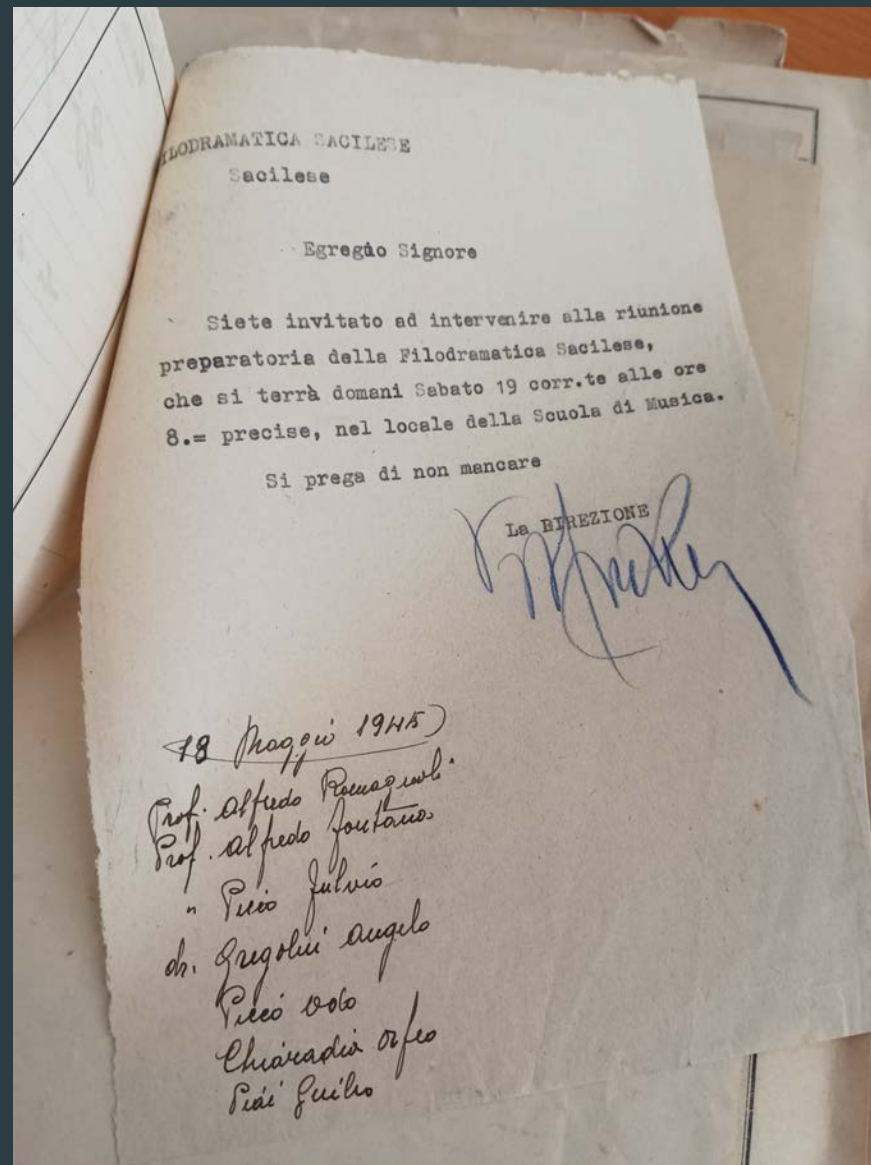 FILODRAMATICA SACILESE
Sacilese
Egregio Signore
Siete invitato ad intervenire alla riunione
preparatoria della Filodramatica Sacilese,
che si terrà domani Sabato 19 corr.te alle ore
8.= precise, nel locale della Scuola di Musica.
Si prega di non mancare
La DIREZIONE
18 Maggio 1945
Prof. Alfredo Romagnoli
Prof. Alfredo Fontana
" Fulvio
dr. Gregolin Angelo
Chiaradia Orfeo